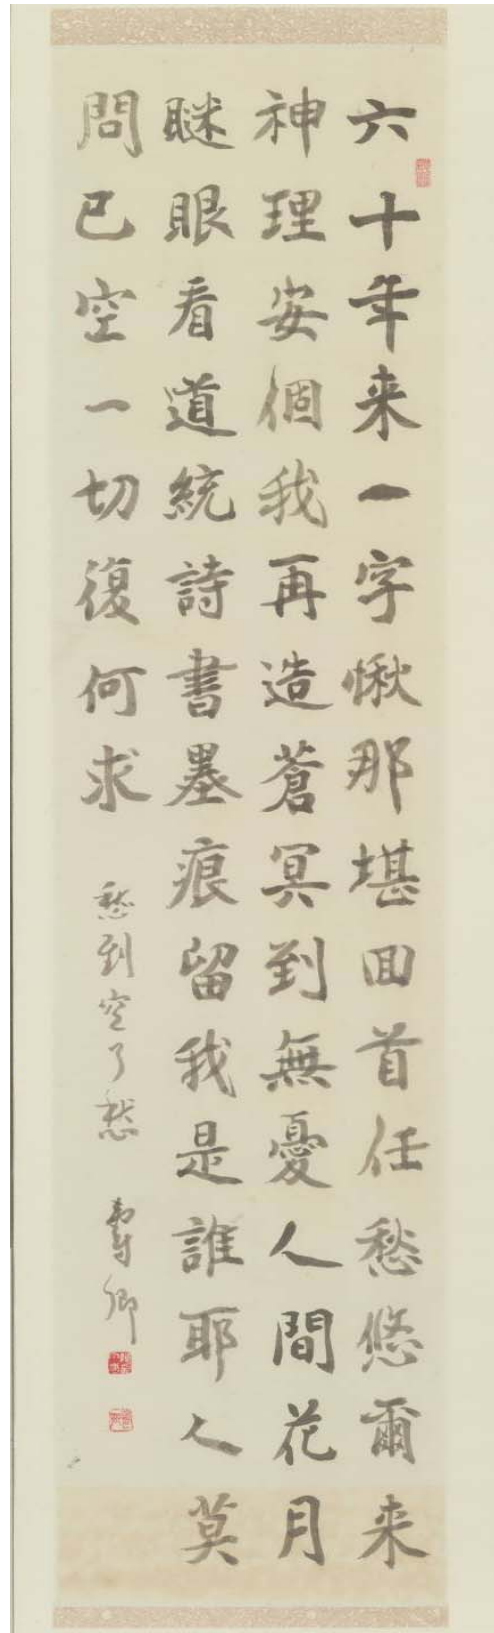 六十年来一字愀那堪回首任愁悠爾来
神理安個我再造蒼冥到無憂人間花月
瞇眼看道統詩書墨痕留我是誰耶人莫
問已空一切復何求
愁到空了愁 壽卿